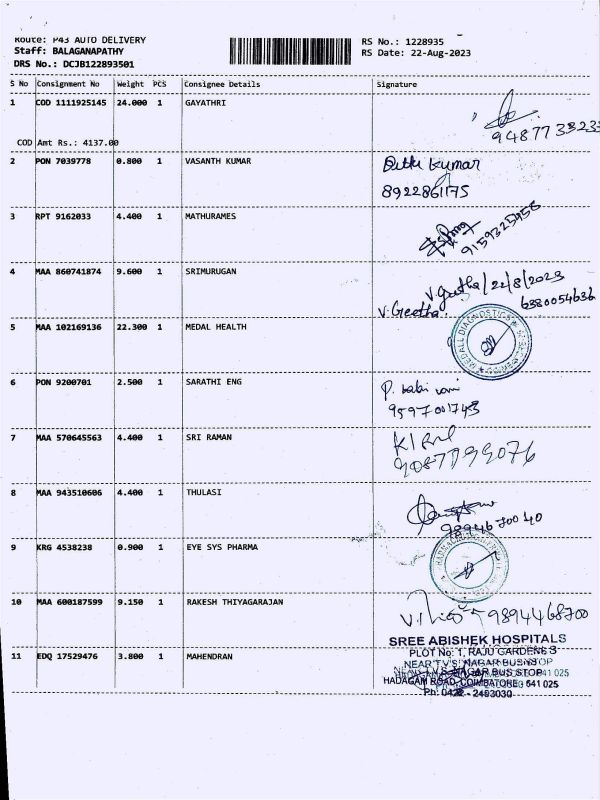 Route: P43 AUTO DELIVERY
Staff: BALAGANAPATHY
DRS No.: DCJB122893501
RS No.: 1228935
RS Date: 22-Aug-2023
S No Consignment No Weight PCS Consignee Details Signature
1 COD 1111925145 24.000 1 GAYATHRI
COD Amt Rs.: 4137.00
2 PON 7039778 0.800 1 VASANTH KUMAR kumar
8922861175
3 RPT 9162033 4.400 1 MATHURAMES
9159325458
4 MAA 860741874 9.600 1 SRIMURUGAN V.geetha/22/8/2023
V.Geetha. 6380054636
5 MAA 102169136 22.300 1 MEDAL HEALTH
MEDALL DIAGNOSTICS
6 PON 9200701 2.500 1 SARATHI ENG P.
9597001743
7 MAA 570645563 4.400 1 SRI RAMAN
8 MAA 943510606 4.400 1 THULASI
9894670040
9 KRG 4538238 0.900 1 EYE SYS PHARMA
10 MAA 600187599 9.150 1 RAKESH THIYAGARAJAN 9894468700
SREE ABISHEK HOSPITALS
11 EDQ 17529476 3.800 1 MAHENDRAN PLOT No: 1, RAJU GARDENS
NEAR T.V.S. NAGAR BUS STOP
HADAGAM ROAD, COIMBATORE - 641 025
Ph: 0422 - 2403030